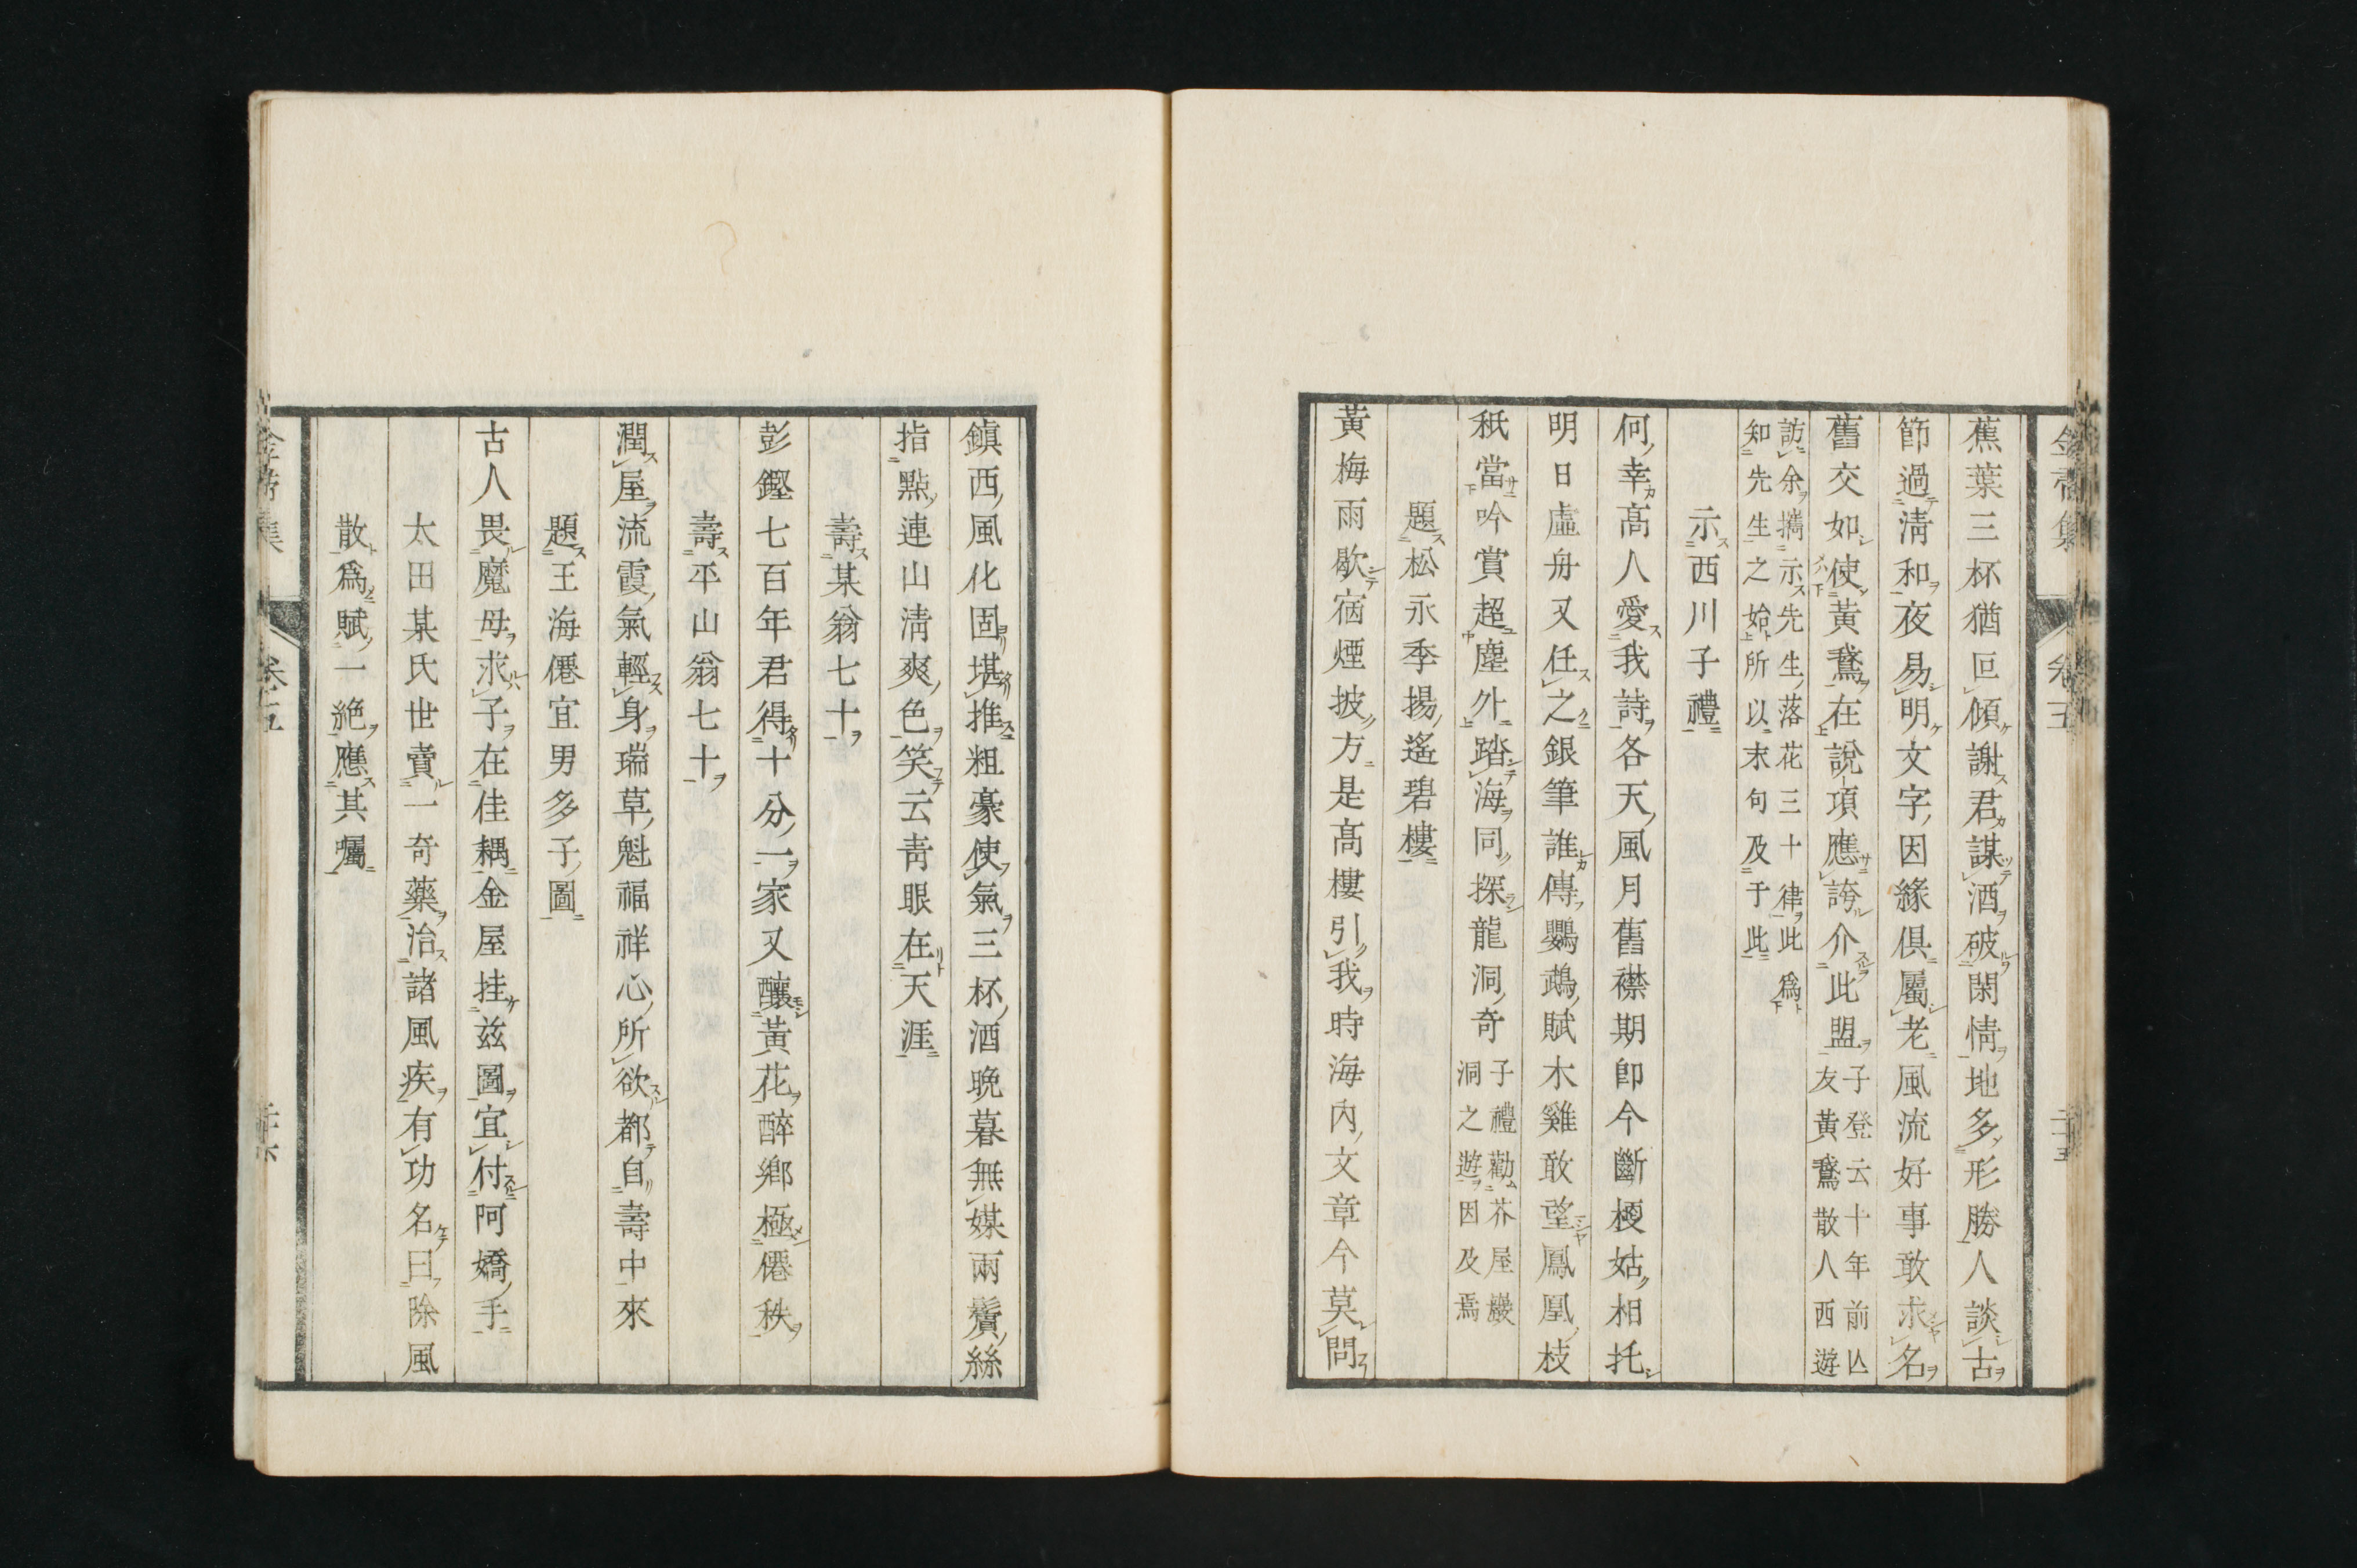 蕉葉三杯猶叵傾謝君謀酒破閑情地多形勝人談古
節過淸和夜易明文字因緣俱屬老風流好事敢求名
舊交如使黃鵞在說項應誇介此盟子登云十年前亾友黃鵞散人西遊
訪余攜示先生落花三十律此爲
知先生之始所以末句及于此
示西川子禮
何幸高人愛我詩各天風月舊襟期卽今斷梗姑相托
明日虛舟又任之銀筆誰傳鸚鵡賦木雞敢望鳳凰枝
秖當吟賞超塵外踏海同探龍洞奇子禮勸芥屋巖洞之遊因及焉
題松永季揚遙碧樓
黃梅雨歇宿煙披方是高樓引我時海內文章今莫問
鎭西風化固堪推粗豪使氣三杯酒晚暮無媒兩鬢絲
指點連山淸爽色笑云靑眼在天涯
壽某翁七十
彭鏗七百年君得十分一家又釀黃花醉鄕極僊秩
壽平山翁七十
潤屋流霞氣輕身瑞草魁福祥心所欲都自壽中來
題王海僊宜男多子圖
古人畏魔母求子在佳耦金屋挂茲圖宜付阿嬌手
太田某氏世賣一奇藥治諸風疾有功名曰除風
散爲賦一絕應其囑